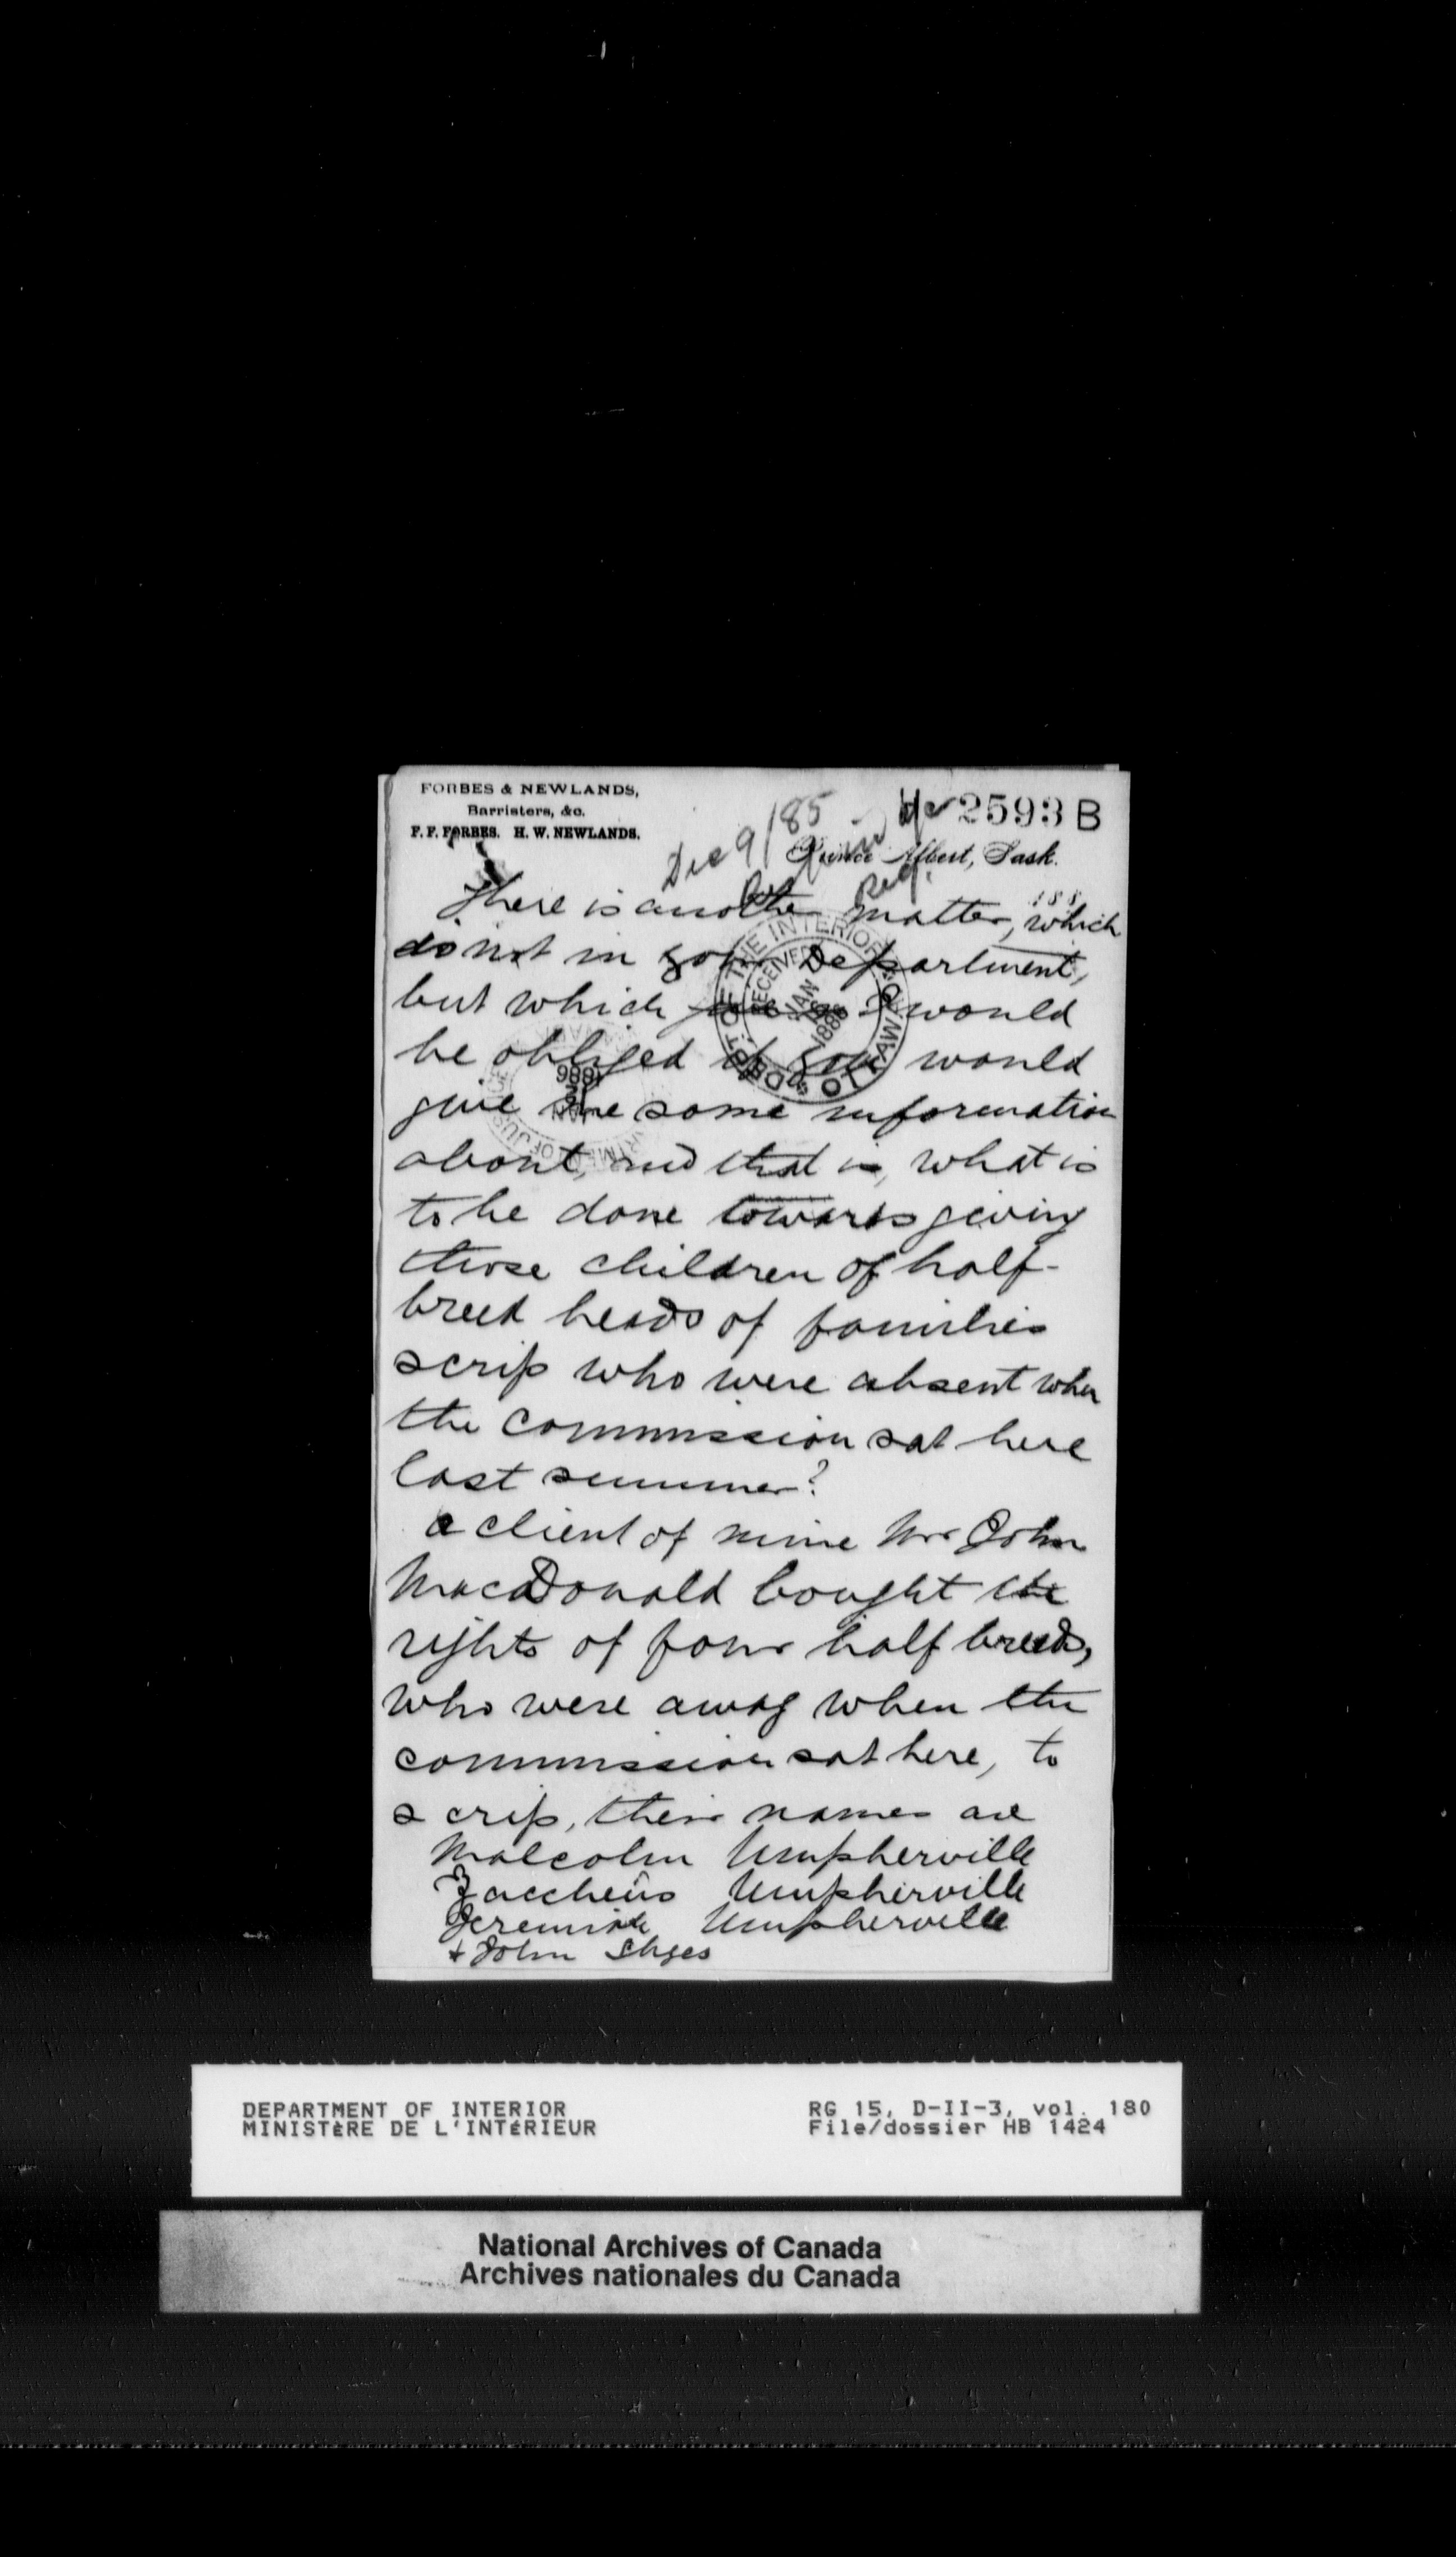 FORBES & NEWLANDS,
Barristers, &c.
F. F. FORBES. H. W. NEWLANDS.
2593 B
Dec 9/85
Prince Albert, Sask.
188
There is another matter, which
is not in your Department,
but which I would
be obliged if you would
give me some information
about, and that is, what is
to be done towards giving
those children of half-
breed heads of families
scrip who were absent when
the commission sat here
last summer?
A client of mine Mr John
MacDonald bought the
rights of four half breeds,
who were away when the
commission sat here, to
scrip, their names are
Malcolm Umpherville
Zaccheus Umpherville
Jeremiah Umpherville
& John
DEPT OF THE INTERIOR OTTAWA
RECEIVED
JAN
1886
DEPARTMENT OF JUSTICE
JAN
1886
DEPARTMENT OF INTERIOR
MINISTÈRE DE L'INTÉRIEUR
RG 15, D-II-3, vol. 180
File/dossier HB 1424
National Archives of Canada
Archives nationales du Canada